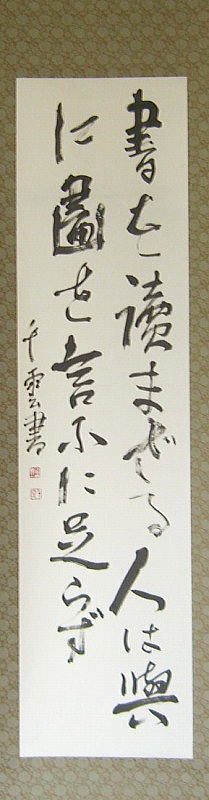 書を讀まざる人は與
に畫を言ふに足らず
千雲書